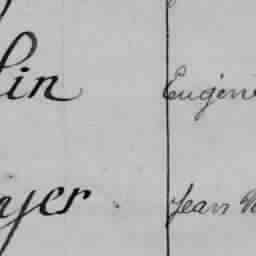 lin Eugén
yer Jean